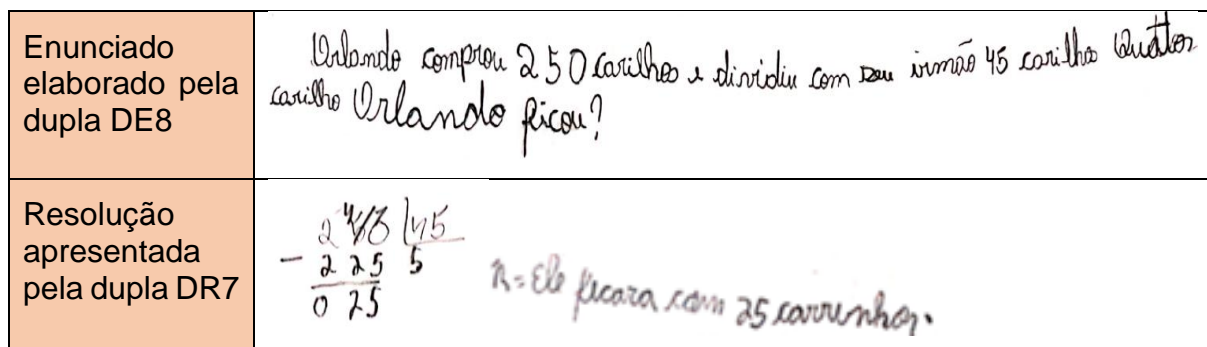 Enunciado
elaborado pela
dupla DE8
Orlando comprou 250 carilhos e dividiu com seu irmão 45 carilho
carilho Orlando ficou?
Resolução
apresentada
pela dupla DR7
2 45
- 225 5
0 25
R= Ele ficara com 25 carrinhos.